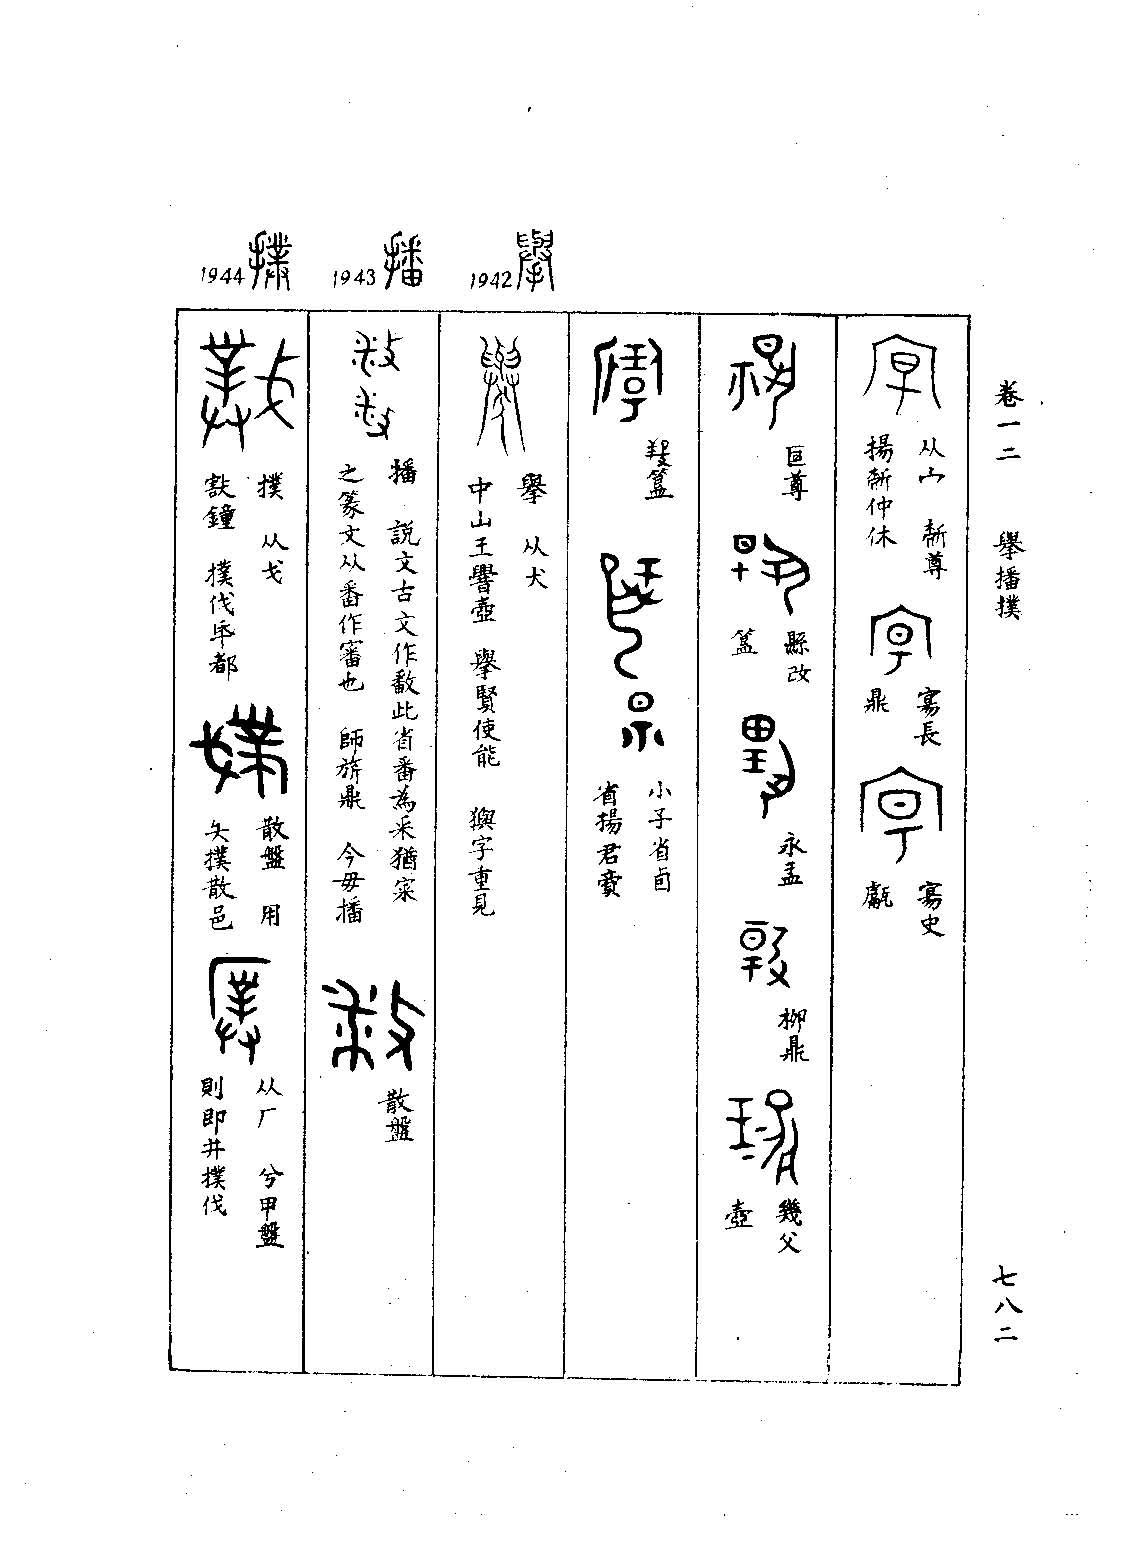 卷一二 舉播撲
七八二
从宀 𣂔尊
揚𣂔仲休
寪長
鼎
寪史
甗
匽尊
縣改
簋
永盂
柳鼎
幾父
壺
簋
小子省卣
省揚君賞
1942
舉 从犬
中山王𰯼壺 舉賢使能 𤣎字重見
1943
播 說文古文作𢿥此省番為釆猶宷
之篆文从番作審也 師旂鼎 今毋播
散盤
1944
撲 从戈
㝬鐘 撲伐氒都
散盤 用
夨撲散邑
从厂 兮甲盤
則即井撲伐